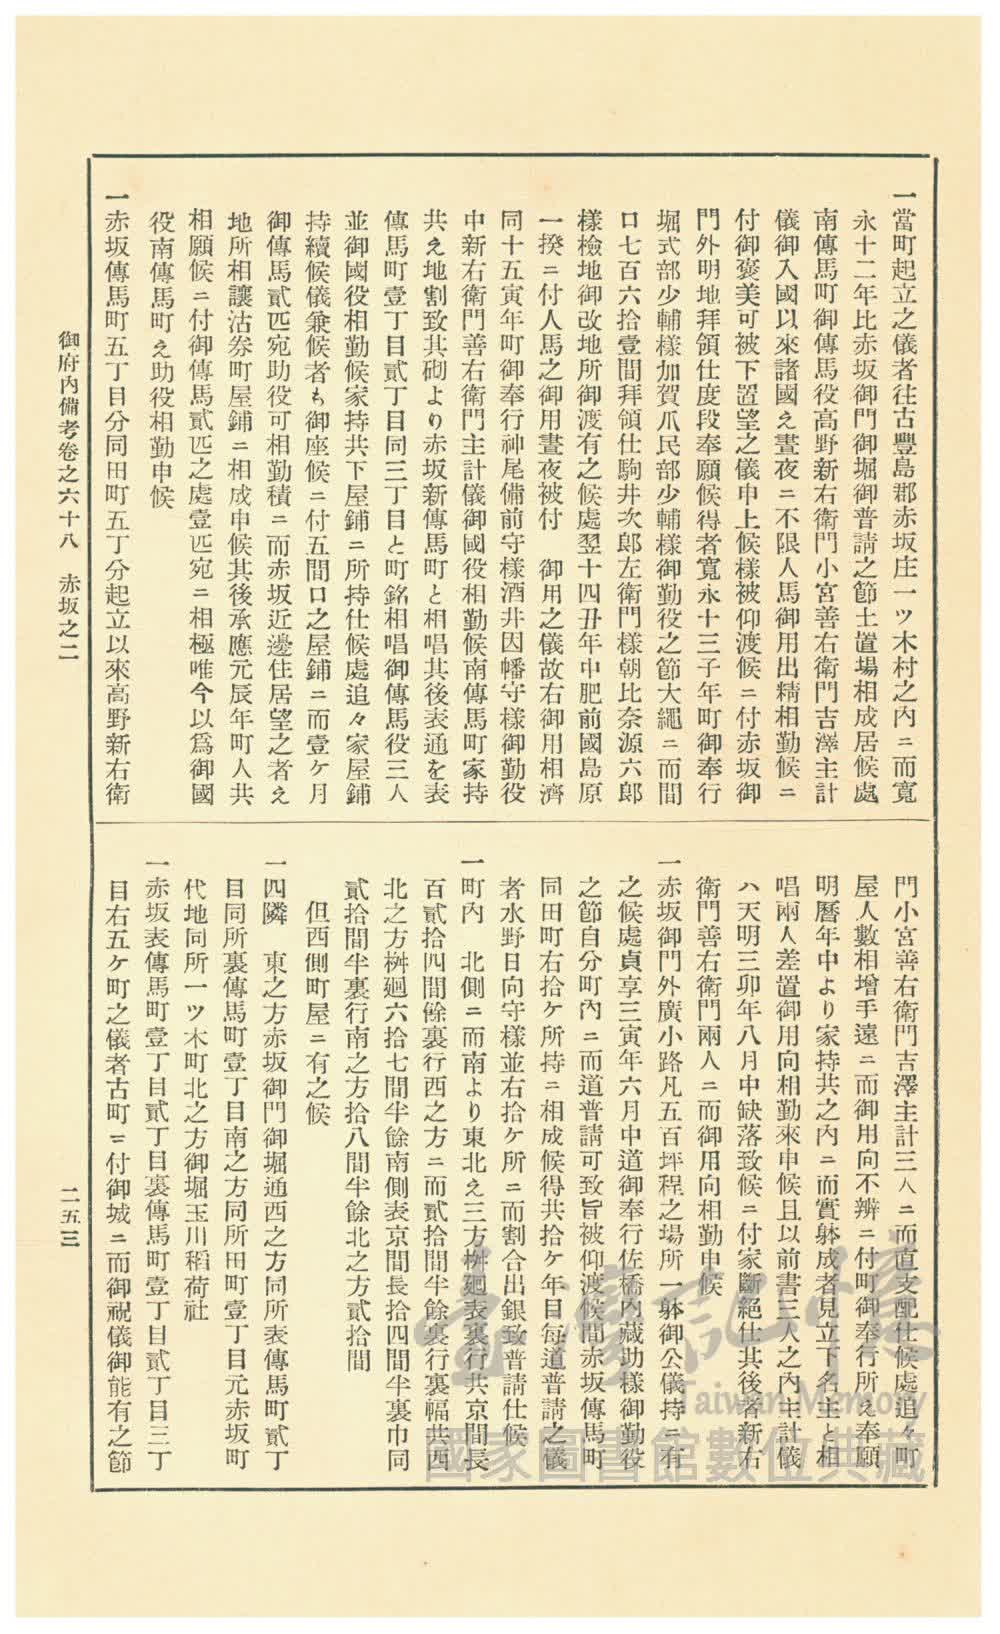 一當町起立之儀者往古豐島郡赤坂庄一ツ木村之內ニ而寬
永十二年比赤坂御門御堀御普請之節土置場相成居候處
南傳馬町御傳馬役高野新右衞門小宮善右衞門吉澤主計
儀御入國以來諸國え晝夜ニ不限人馬御用出精相勤候ニ
付御褒美可被下置望之儀申上候樣被仰渡候ニ付赤坂御
門外明地拜領仕度段奉願候得者寬永十三子年町御奉行
堀式部少輔樣加賀爪民部少輔樣御勤役之節大繩ニ而間
口七百六拾壹間拜領仕駒井次郎左衞門樣朝比奈源六郎
樣檢地御改地所御渡有之候處翌十四丑年中肥前國島原
一揆ニ付人馬之御用晝夜被付　御用之儀故右御用相濟
同十五寅年町御奉行神尾備前守樣酒井因幡守樣御勤役
中新右衞門善右衞門主計儀御國役相勤候南傳馬町家持
共え地割致其砌より赤坂新傳馬町と相唱其後表通を表
傳馬町壹丁目貳丁目同三丁目と町銘相唱御傳馬役三人
並御國役相勤候家持共下屋鋪ニ所持仕候處追々家屋鋪
持續候儀兼候者も御座候ニ付五間口之屋鋪ニ而壹ケ月
御傳馬貳匹宛助役可相勤積ニ而赤坂近邊住居望之者え
地所相讓沽券町屋鋪ニ相成申候其後承應元辰年町人共
相願候ニ付御傳馬貳匹之處壹匹宛ニ相極唯今以爲御國
役南傳馬町え助役相勤申候
一赤坂傳馬町五丁目分同田町五丁分起立以來高野新右衞
門小宮善右衞門吉澤主計三人ニ而直支配仕候處追々町
屋人數相增手遠ニ而御用向不辨ニ付町御奉行所え奉願
明曆年中より家持共之內ニ而實躰成者見立下名主と相
唱兩人差置御用向相勤來申候且以前書三人之內主計儀
ハ天明三卯年八月中缺落致候ニ付家斷絕仕其後者新右
衞門善右衞門兩人ニ而御用向相勤申候
一赤坂御門外廣小路凡五百坪程之場所一躰御公儀持ニ有
之候處貞享三寅年六月中道御奉行佐橋內藏助樣御勤役
之節自分町內ニ而道普請可致旨被仰渡候間赤坂傳馬町
同田町右拾ケ所持ニ相成候得共拾ケ年目每道普請之儀
者水野日向守樣並右拾ケ所ニ而割合出銀致普請仕候
一町內　北側ニ而南より東北え三方桝廻表裏行共京間長
百貳拾四間餘裏行西之方ニ而貳拾間半餘裏行裏幅共西
北之方桝廻六拾七間半餘南側表京間長拾四間半裏巾同
貳拾間半裏行南之方拾八間半餘北之方貳拾間
但西側町屋ニ有之候
一四隣　東之方赤坂御門御堀通西之方同所表傳馬町貳丁
目同所裏傳馬町壹丁目南之方同所田町壹丁目元赤坂町
代地同所一ツ木町北之方御堀玉川稻荷社
一赤坂表傳馬町壹丁目貳丁目裏傳馬町壹丁目貳丁目三丁
目右五ケ町之儀者古町ニ付御城ニ而御祝儀御能有之節
御府內備考卷之六十八　赤坂之二
二五三
臺灣記憶
Taiwan Memory
國家圖書館數位典藏